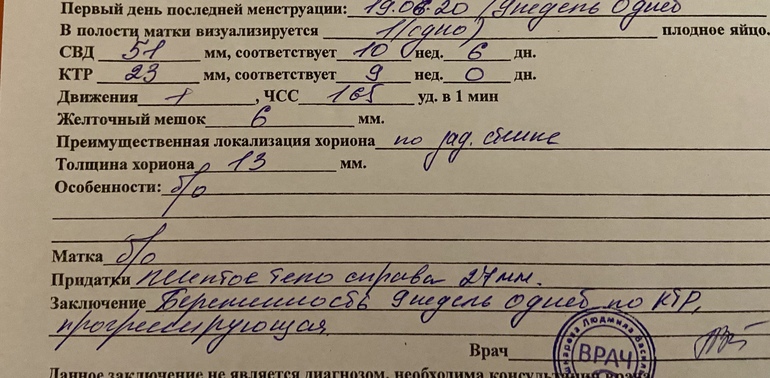 Первый день последней менструации: 19.06.20 (9недель 0дней
В полости матки визуализируется 1(одно) плодное яйцо.
СВД 51 мм, соответствует 10 нед. 6 дн.
КТР 23 мм, соответствует 9 нед. 0 дн.
Движения +, ЧСС 165 уд. в 1 мин
Желточный мешок 6 мм.
Преимущественная локализация хориона по зад. стенке
Толщина хориона 13 мм.
Особенности: б/о
Матка б/о
Придатки желтое тело справа 27мм.
Заключение Беременность 9недель 0дней по КТР,
прогрессирующая.
Врач
Людмила
ВРАЧ
Данное заключение не является диагнозом, необходима консультация врача